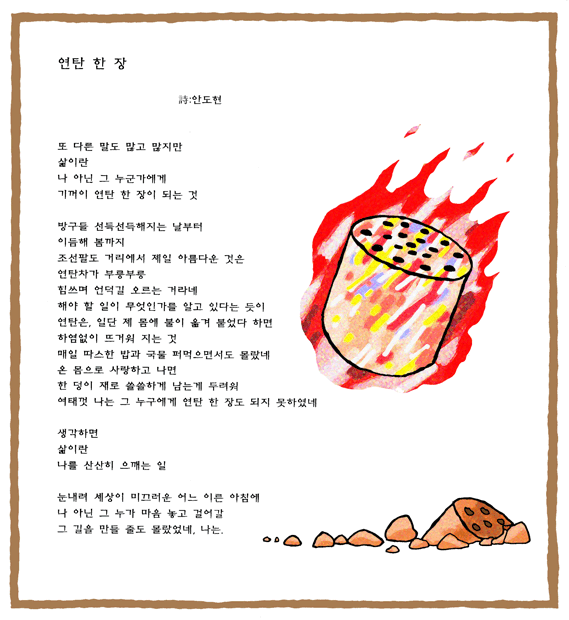 연탄 한 장
詩:안도현
또 다른 말도 많고 많지만
삶이란
나 아닌 그 누군가에게
기꺼이 연탄 한 장이 되는 것
방구들 선득선득해지는 날부터
이듬해 봄까지
조선팔도 거리에서 제일 아름다운 것은
연탄차가 부릉부릉
힘쓰며 언덕길 오르는 거라네
해야 할 일이 무엇인가를 알고 있다는 듯이
연탄은, 일단 제 몸에 불이 옮겨 붙었다 하면
하염없이 뜨거워 지는 것
매일 따스한 밥과 국물 퍼먹으면서도 몰랐네
온 몸으로 사랑하고 나면
한 덩이 재로 쓸쓸하게 남는게 두려워
여태껏 나는 그 누구에게 연탄 한 장도 되지 못하였네
생각하면
삶이란
나를 산산히 으깨는 일
눈내려 세상이 미끄러운 어느 이른 아침에
나 아닌 그 누가 마음 놓고 걸어갈
그 길을 만들 줄도 몰랐었네, 나는.